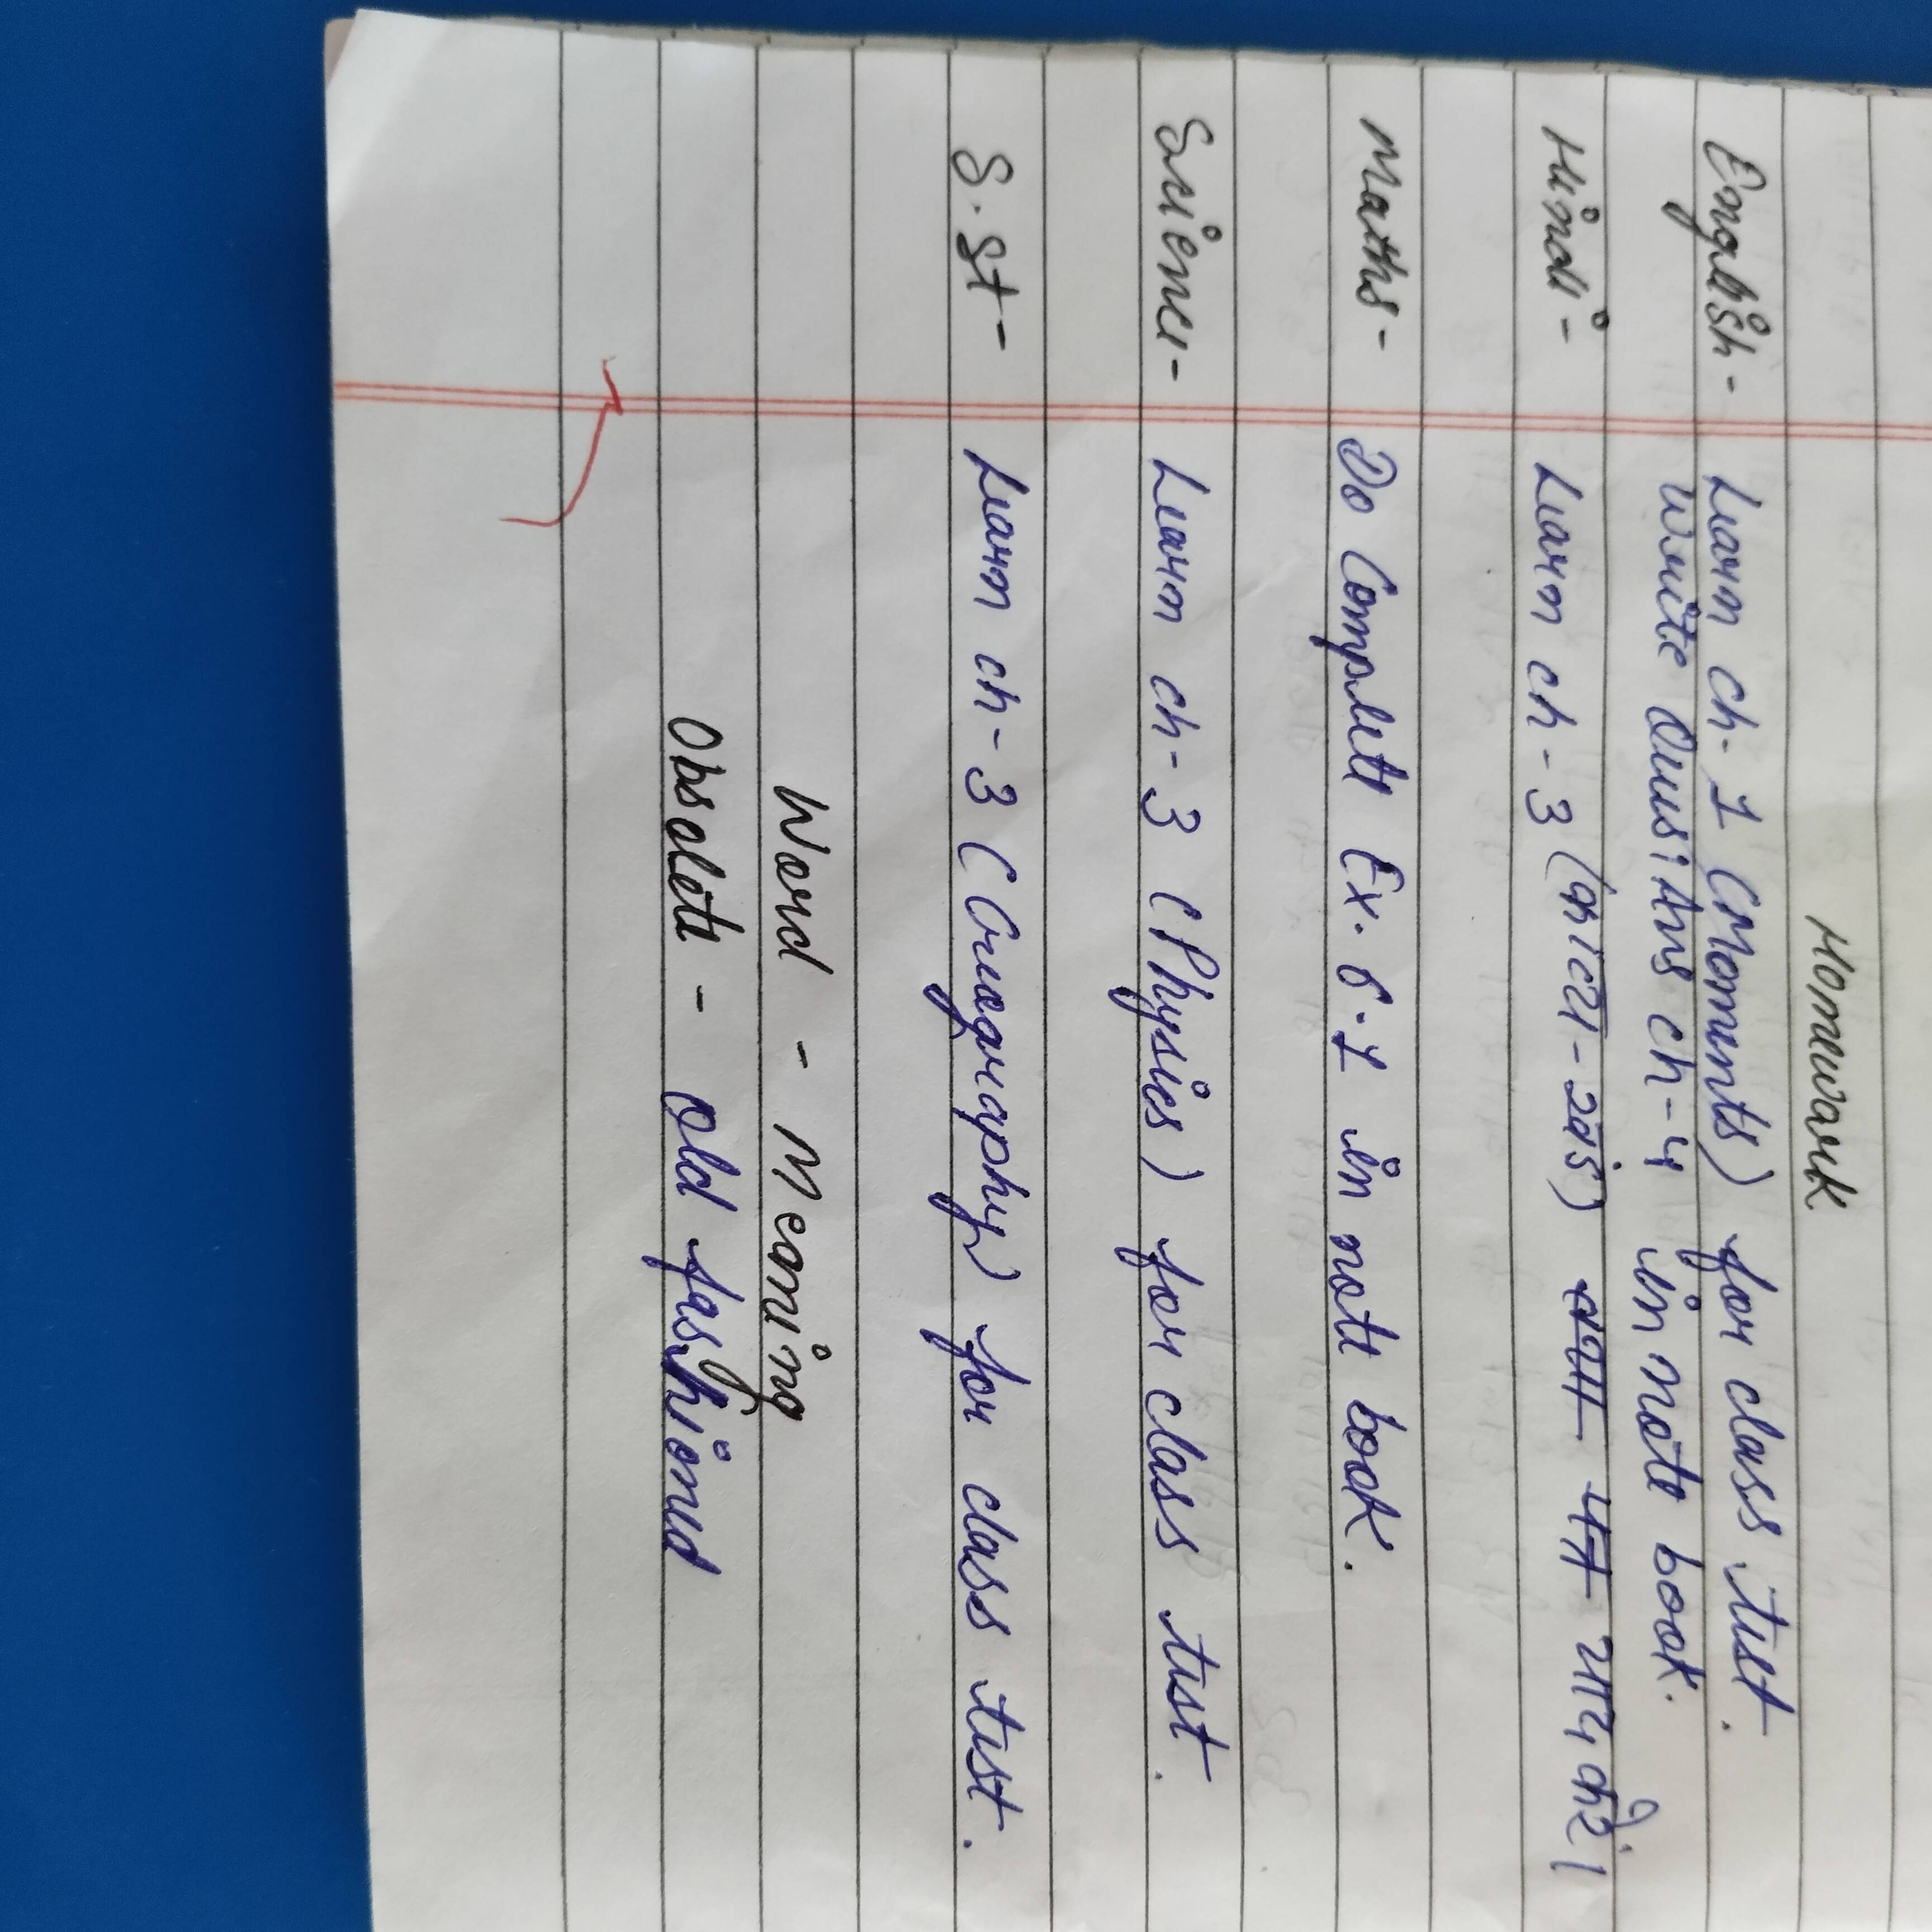 Homework
English- Learn ch-1 (Moments) for class test.
Write Ques/Ans ch-4 in note book.
Hindi- Learn ch-3 (काव्य-खंड) याद करें।
Maths- Do Complete Ex. 6.1 in note book.
Science- Learn ch-3 (Physics) for class test.
S.St- Learn ch-3 (Geography) for class test.
Word - Meaning
Obsolete - old fashioned